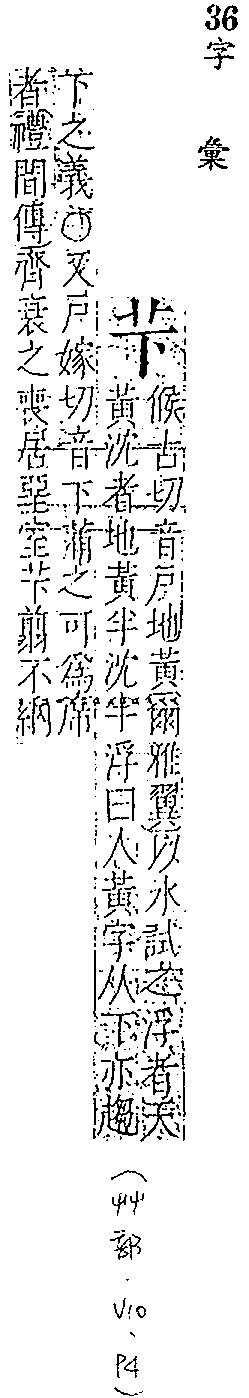 36
字彙
芐
候古切音戶地黃爾雅翼以水試之浮者天
黃沈者地黃半沈半浮曰人黃字从下亦趨
下之義○又戶嫁切音下蒲之可爲席
者禮間傳齊衰之喪居堊室芐翦不納
(艸部.V10、P4)